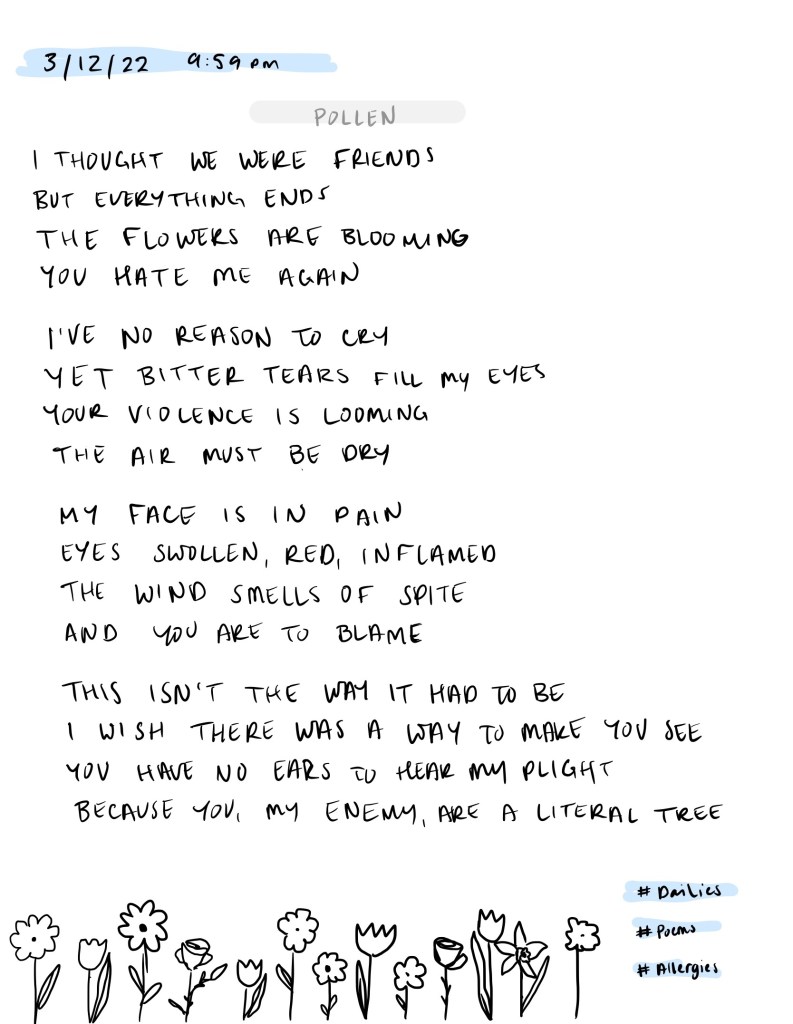 3/12/22 9:59 pm
POLLEN
I THOUGHT WE WERE FRIENDS
BUT EVERYTHING ENDS
THE FLOWERS ARE BLOOMING
YOU HATE ME AGAIN
I'VE NO REASON TO CRY
YET BITTER TEARS FILL MY EYES
YOUR VIOLENCE IS LOOMING
THE AIR MUST BE DRY
MY FACE IS IN PAIN
EYES SWOLLEN, RED, INFLAMED
THE WIND SMELLS OF SPITE
AND YOU ARE TO BLAME
THIS ISN'T THE WAY IT HAD TO BE
I WISH THERE WAS A WAY TO MAKE YOU SEE
YOU HAVE NO EARS TO HEAR MY PLIGHT
BECAUSE YOU, MY ENEMY, ARE A LITERAL TREE
# Dailies
# Poems
# Allergies